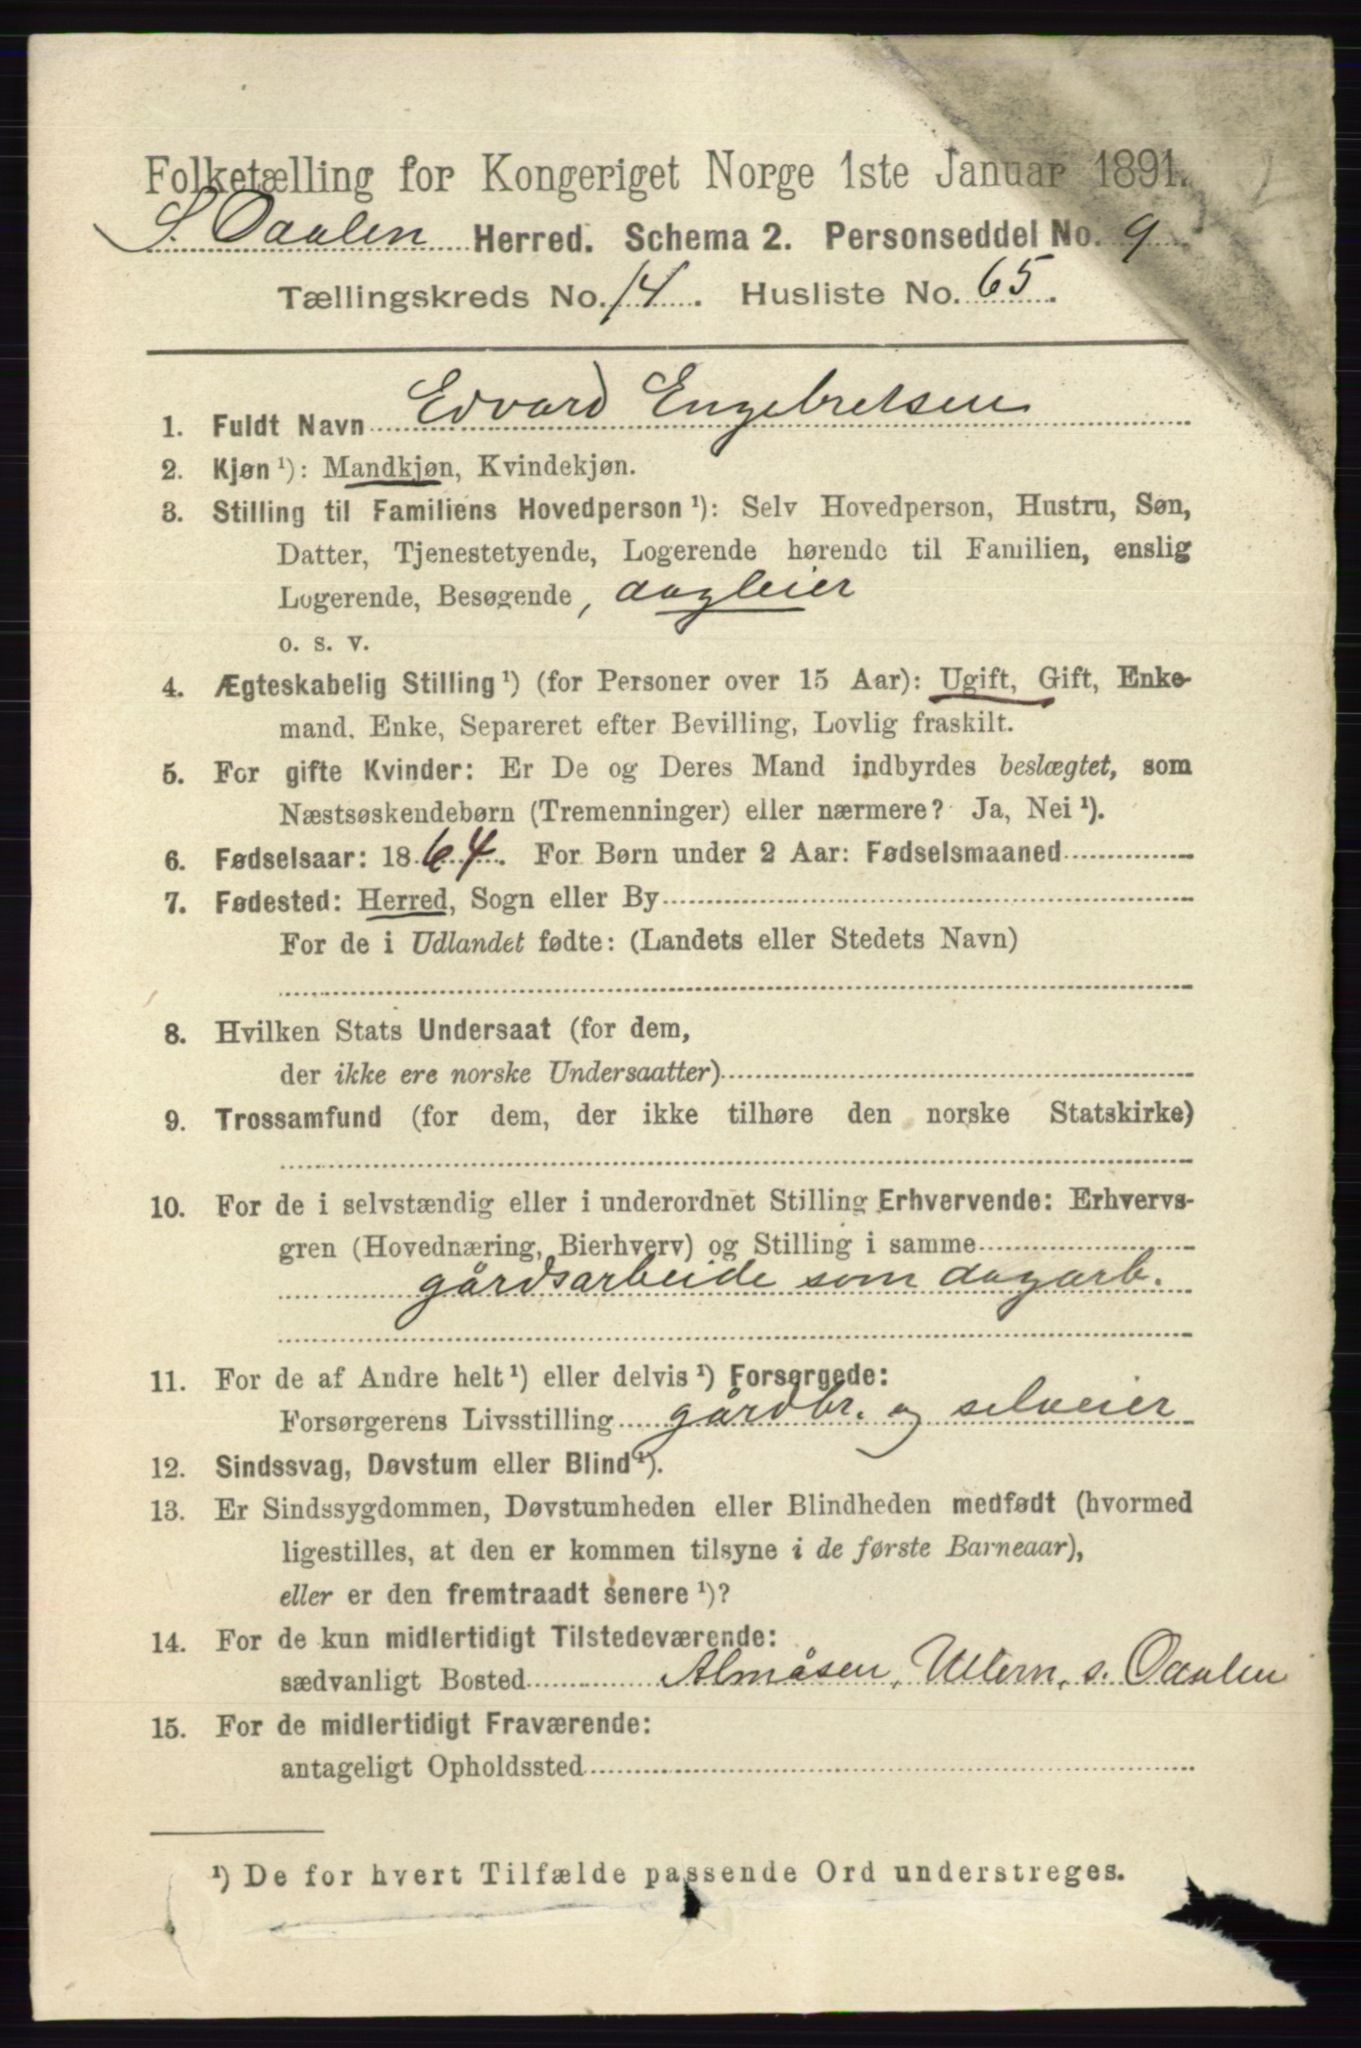 Folketælling for Kongeriget Norge 1ste Januar 1891.
S. Oaalen Herred. Schema 2. Personseddel No. 9
Tællingskreds No. 14. Husliste No. 65.
1. Fuldt Navn Edvard Engebretsen
2. Kjøn ¹): Mandkjøn, Kvindekjøn.
3. Stilling til Familiens Hovedperson ¹): Selv Hovedperson, Hustru, Søn,
Datter, Tjenestetyende, Logerende hørende til Familien, enslig
Logerende, Besøgende, dagleier
o. s. v.
4. Ægteskabelig Stilling ¹) (for Personer over 15 Aar): Ugift, Gift, Enke-
mand, Enke, Separeret efter Bevilling, Lovlig fraskilt.
5. For gifte Kvinder: Er De og Deres Mand indbyrdes beslægtet, som
Næstsøskendebørn (Tremenninger) eller nærmere? Ja, Nei ¹).
6. Fødselsaar: 1864. For Børn under 2 Aar: Fødselsmaaned
7. Fødested: Herred, Sogn eller By
For de i Udlandet fødte: (Landets eller Stedets Navn)
8. Hvilken Stats Undersaat (for dem,
der ikke ere norske Undersaatter)
9. Trossamfund (for dem, der ikke tilhøre den norske Statskirke)
10. For de i selvstændig eller i underordnet Stilling Erhvervende: Erhvervs-
gren (Hovednæring, Bierhverv) og Stilling i samme
gårdsarbeide som dagarb.
11. For de af Andre helt ¹) eller delvis ¹) Forsørgede:
Forsørgerens Livsstilling gårdbr. og selveier
12. Sindssvag, Døvstum eller Blind ¹).
13. Er Sindssygdommen, Døvstumheden eller Blindheden medfødt (hvormed
ligestilles, at den er kommen tilsyne i de første Barneaar),
eller er den fremtraadt senere ¹)?
14. For de kun midlertidigt Tilstedeværende:
sædvanligt Bosted Almåsen, Ullern, s. Oaalen
15. For de midlertidigt Fraværende:
antageligt Opholdssted
¹) De for hvert Tilfælde passende Ord understreges.